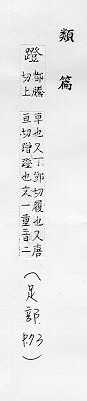 類篇
蹬 都騰切上車也又丁鄧切履也又唐亘切蹭蹬也文一重音二(足部 P73)